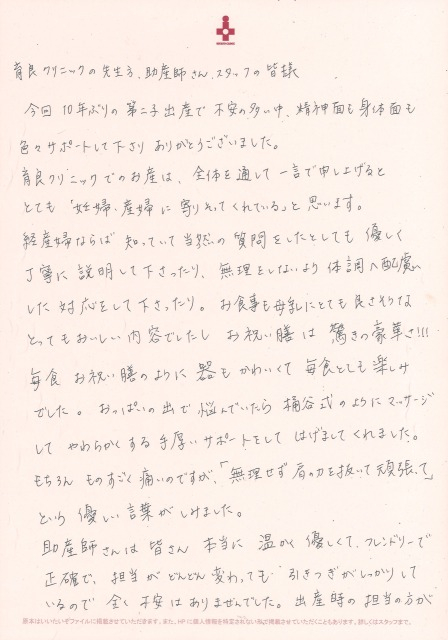 育良クリニックの先生方、助産師さん、スタッフの皆様
今回10年ぶりの第二子出産で不安の多い中、精神面も身体面も
色々サポートして下さりありがとうございました。
育良クリニックでのお産は、全体を通して一言で申し上げると
とても「妊婦・産婦に寄りそってくれている」と思います。
経産婦ならば知っていて当然の質問をしたとしても優しく
丁寧に説明して下さったり、無理をしないよう体調へ配慮
した対応をして下さったり。お食事も母乳にとても良さそうな
とってもおいしい内容でしたし お祝い膳は驚きの豪華さ!!!
毎食お祝い膳のように器もかわいくて毎食とても楽しみ
でした。おっぱいの出で悩んでいたら桶谷式のようにマッサージ
して やわらかくする手厚いサポートをして はげましてくれました。
もちろん ものすごく痛いのですが、「無理せず肩の力を抜いて頑張って」
という優しい言葉がしみました。
助産師さんは皆さん本当に温かく優しくて、フレンドリーで
正確で、担当がどんどん変わっても引きつぎがしっかりして
いるので全く不安はありませんでした。出産時の担当の方が
原本はいいたいぞファイルに掲載させていただきます。また、HPに個人情報を特定されない形で掲載させていただくこともあります。詳しくはスタッフまで。